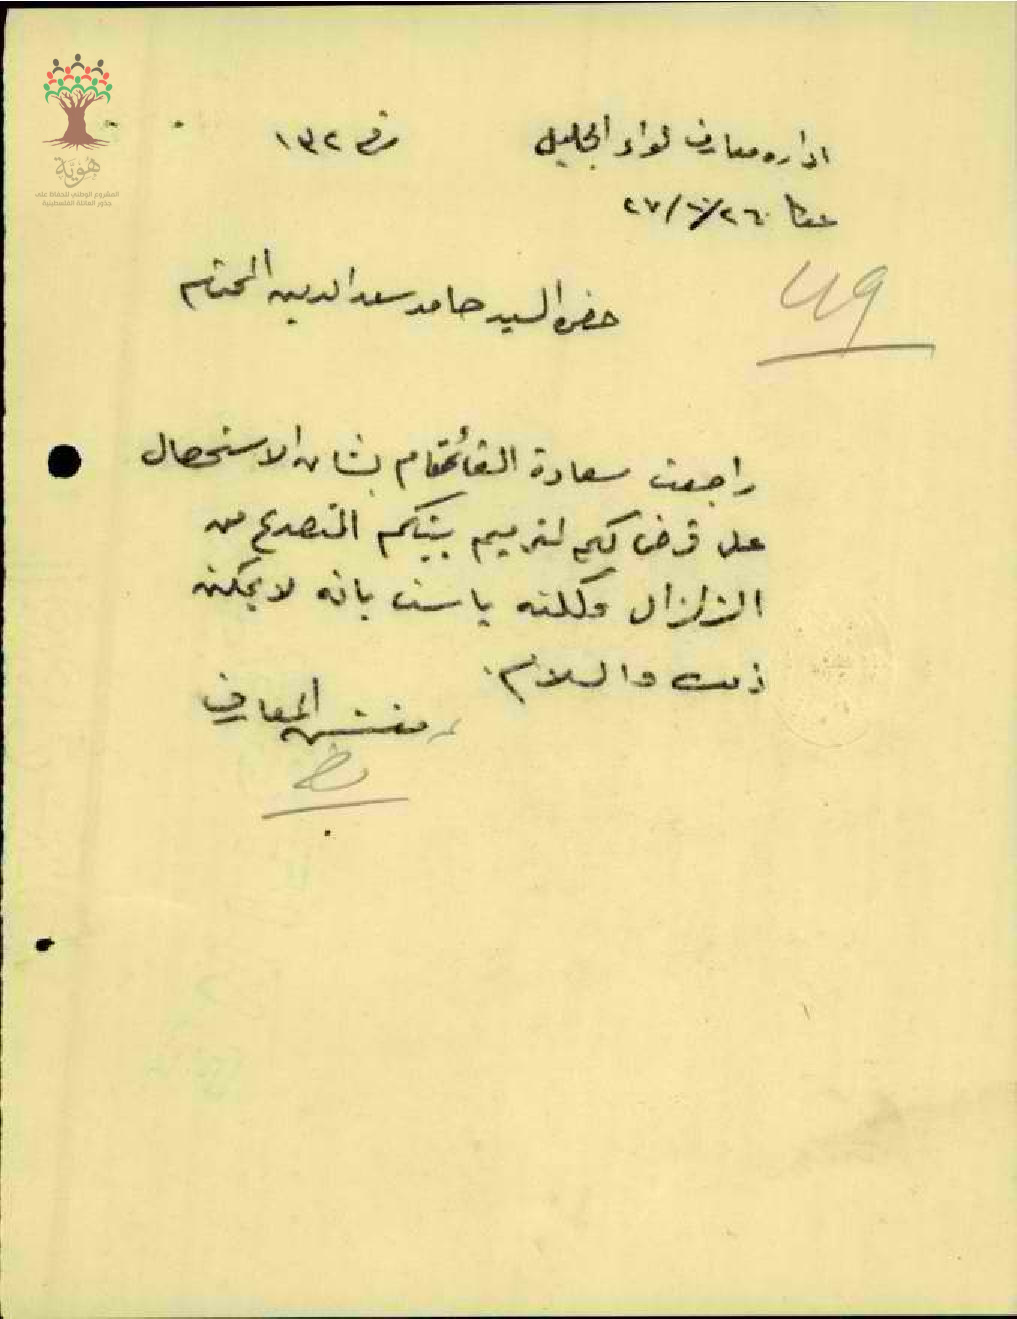 هُوِيَّة
المشروع الوطني للحفاظ على
جذور العائلة الفلسطينية
اداره معارف لواء الجليل رقم ١٣٢
عكا
49
حضرة السيد حامد سعد الدين المحترم
راجعت سعادة القائمقام بشان الاستحصال
على قرض لكم لترميم بيتكم المتصدع من
الزلزال ولكنه يا سف بانه لا يمكن
ذلك والسلام.
مفتش المعارف